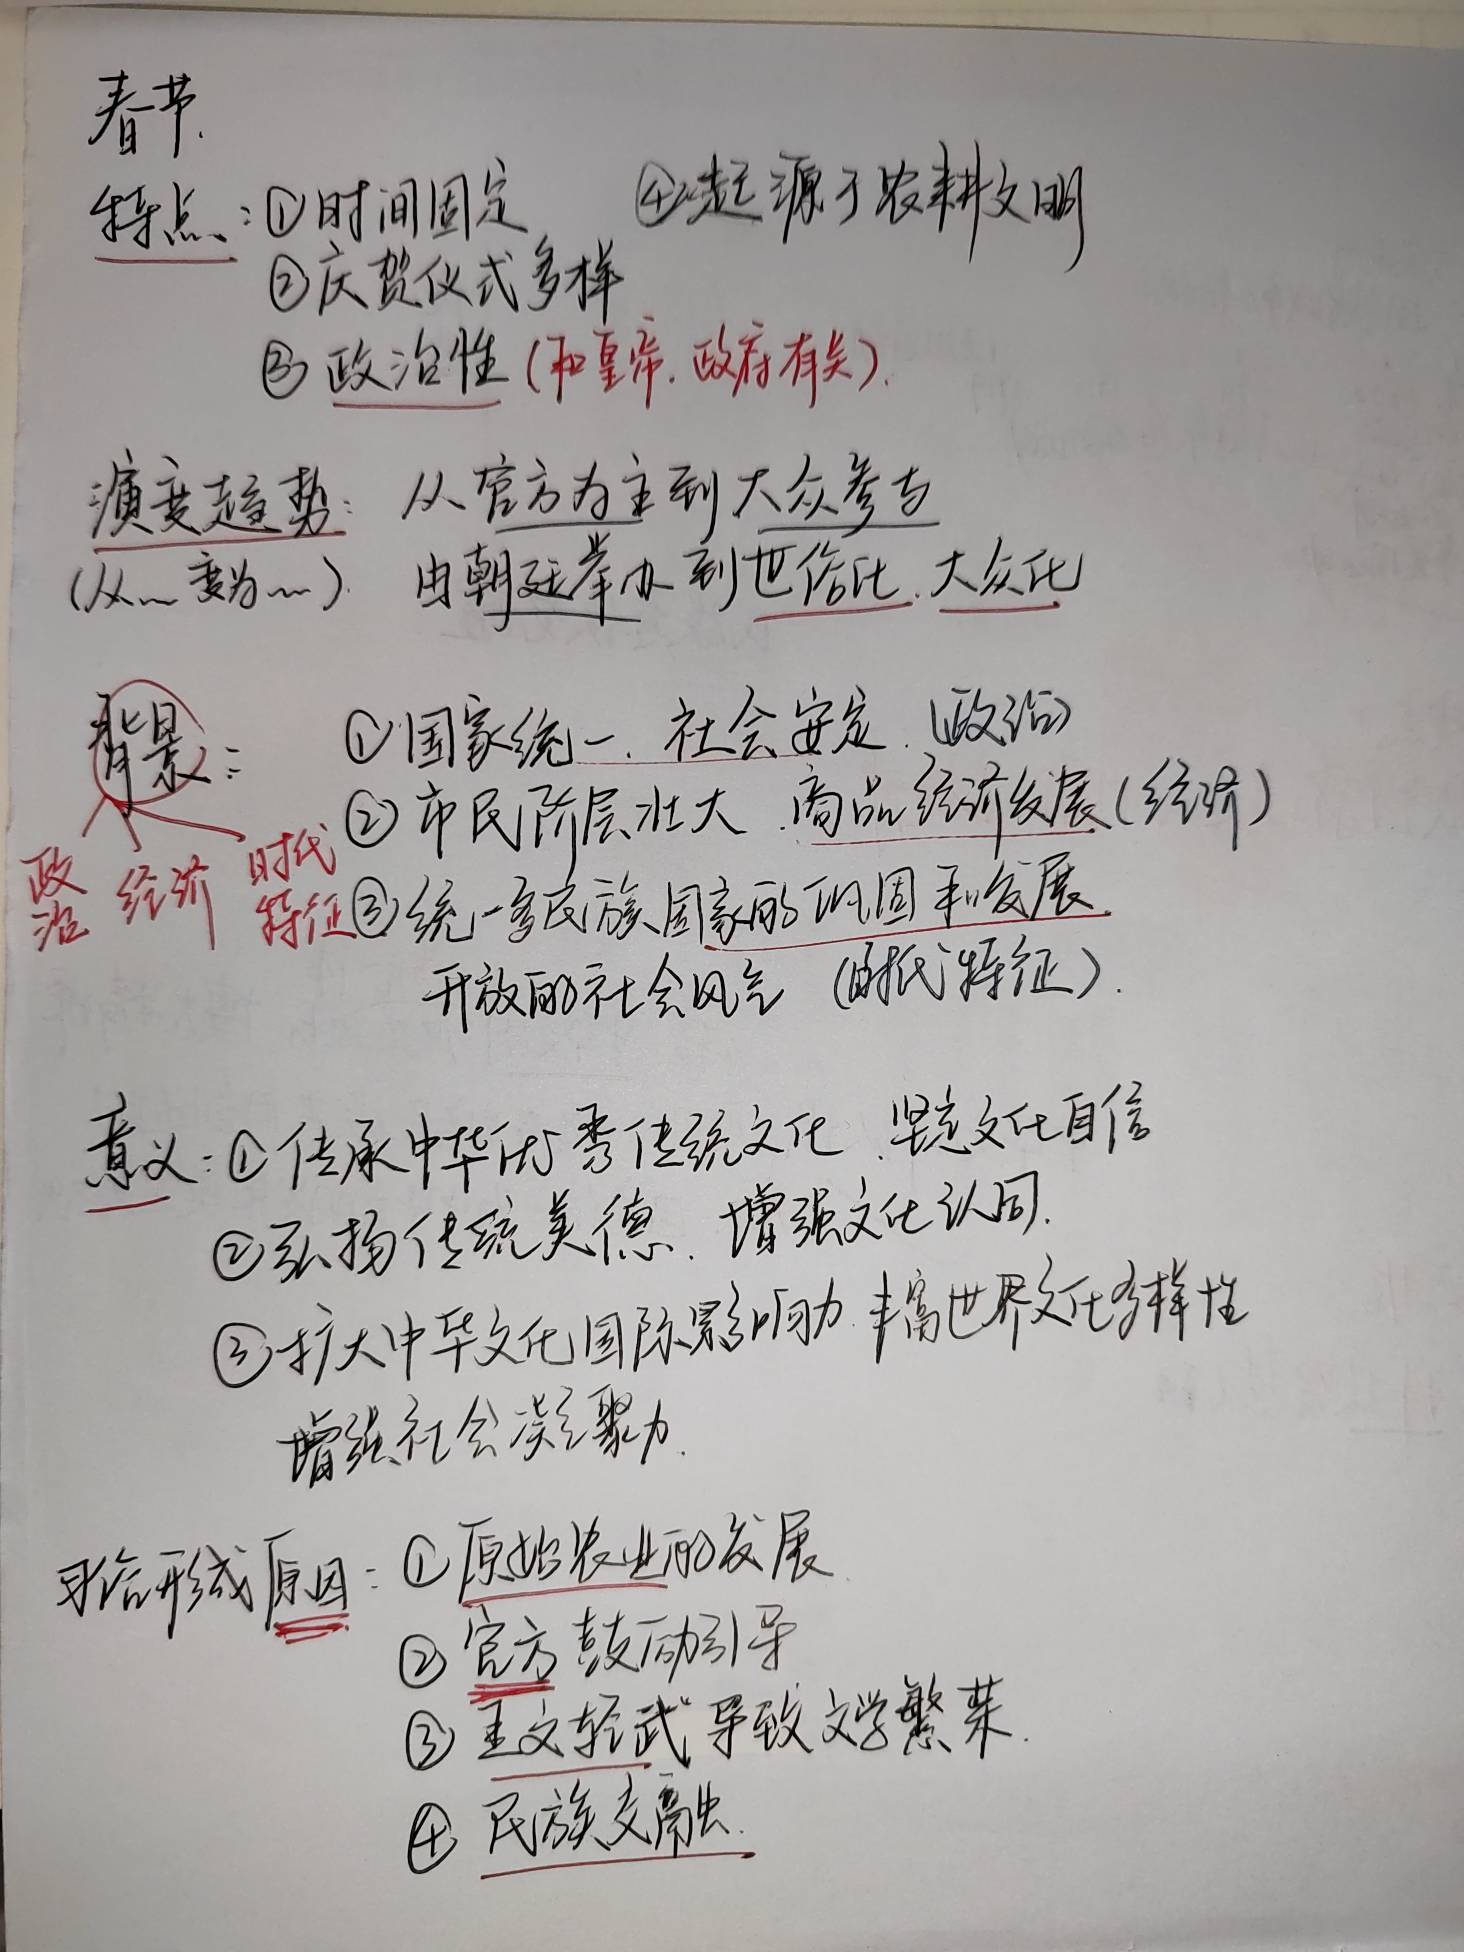 春节.
特点: ①时间固定 ④起源于农耕文明
②庆贺仪式多样
③政治性(和皇帝.政府有关).
演变趋势: 从官方为主到大众参与
(从...变为...). 由朝廷举办到世俗化.大众化
背景: ①国家统一.社会安定.(政治)
②市民阶层壮大.商品经济发展(经济)
政治 经济 时代特征
③统一多民族国家的巩固和发展.
开放的社会风气 (时代特征).
意义: ①传承中华优秀传统文化.坚定文化自信
②弘扬传统美德.增强文化认同.
③扩大中华文化国际影响力.丰富世界文化多样性
增强社会凝聚力.
习俗形成原因: ①原始农业的发展
②官方鼓励引导
③重文轻武导致文学繁荣.
④民族交融.